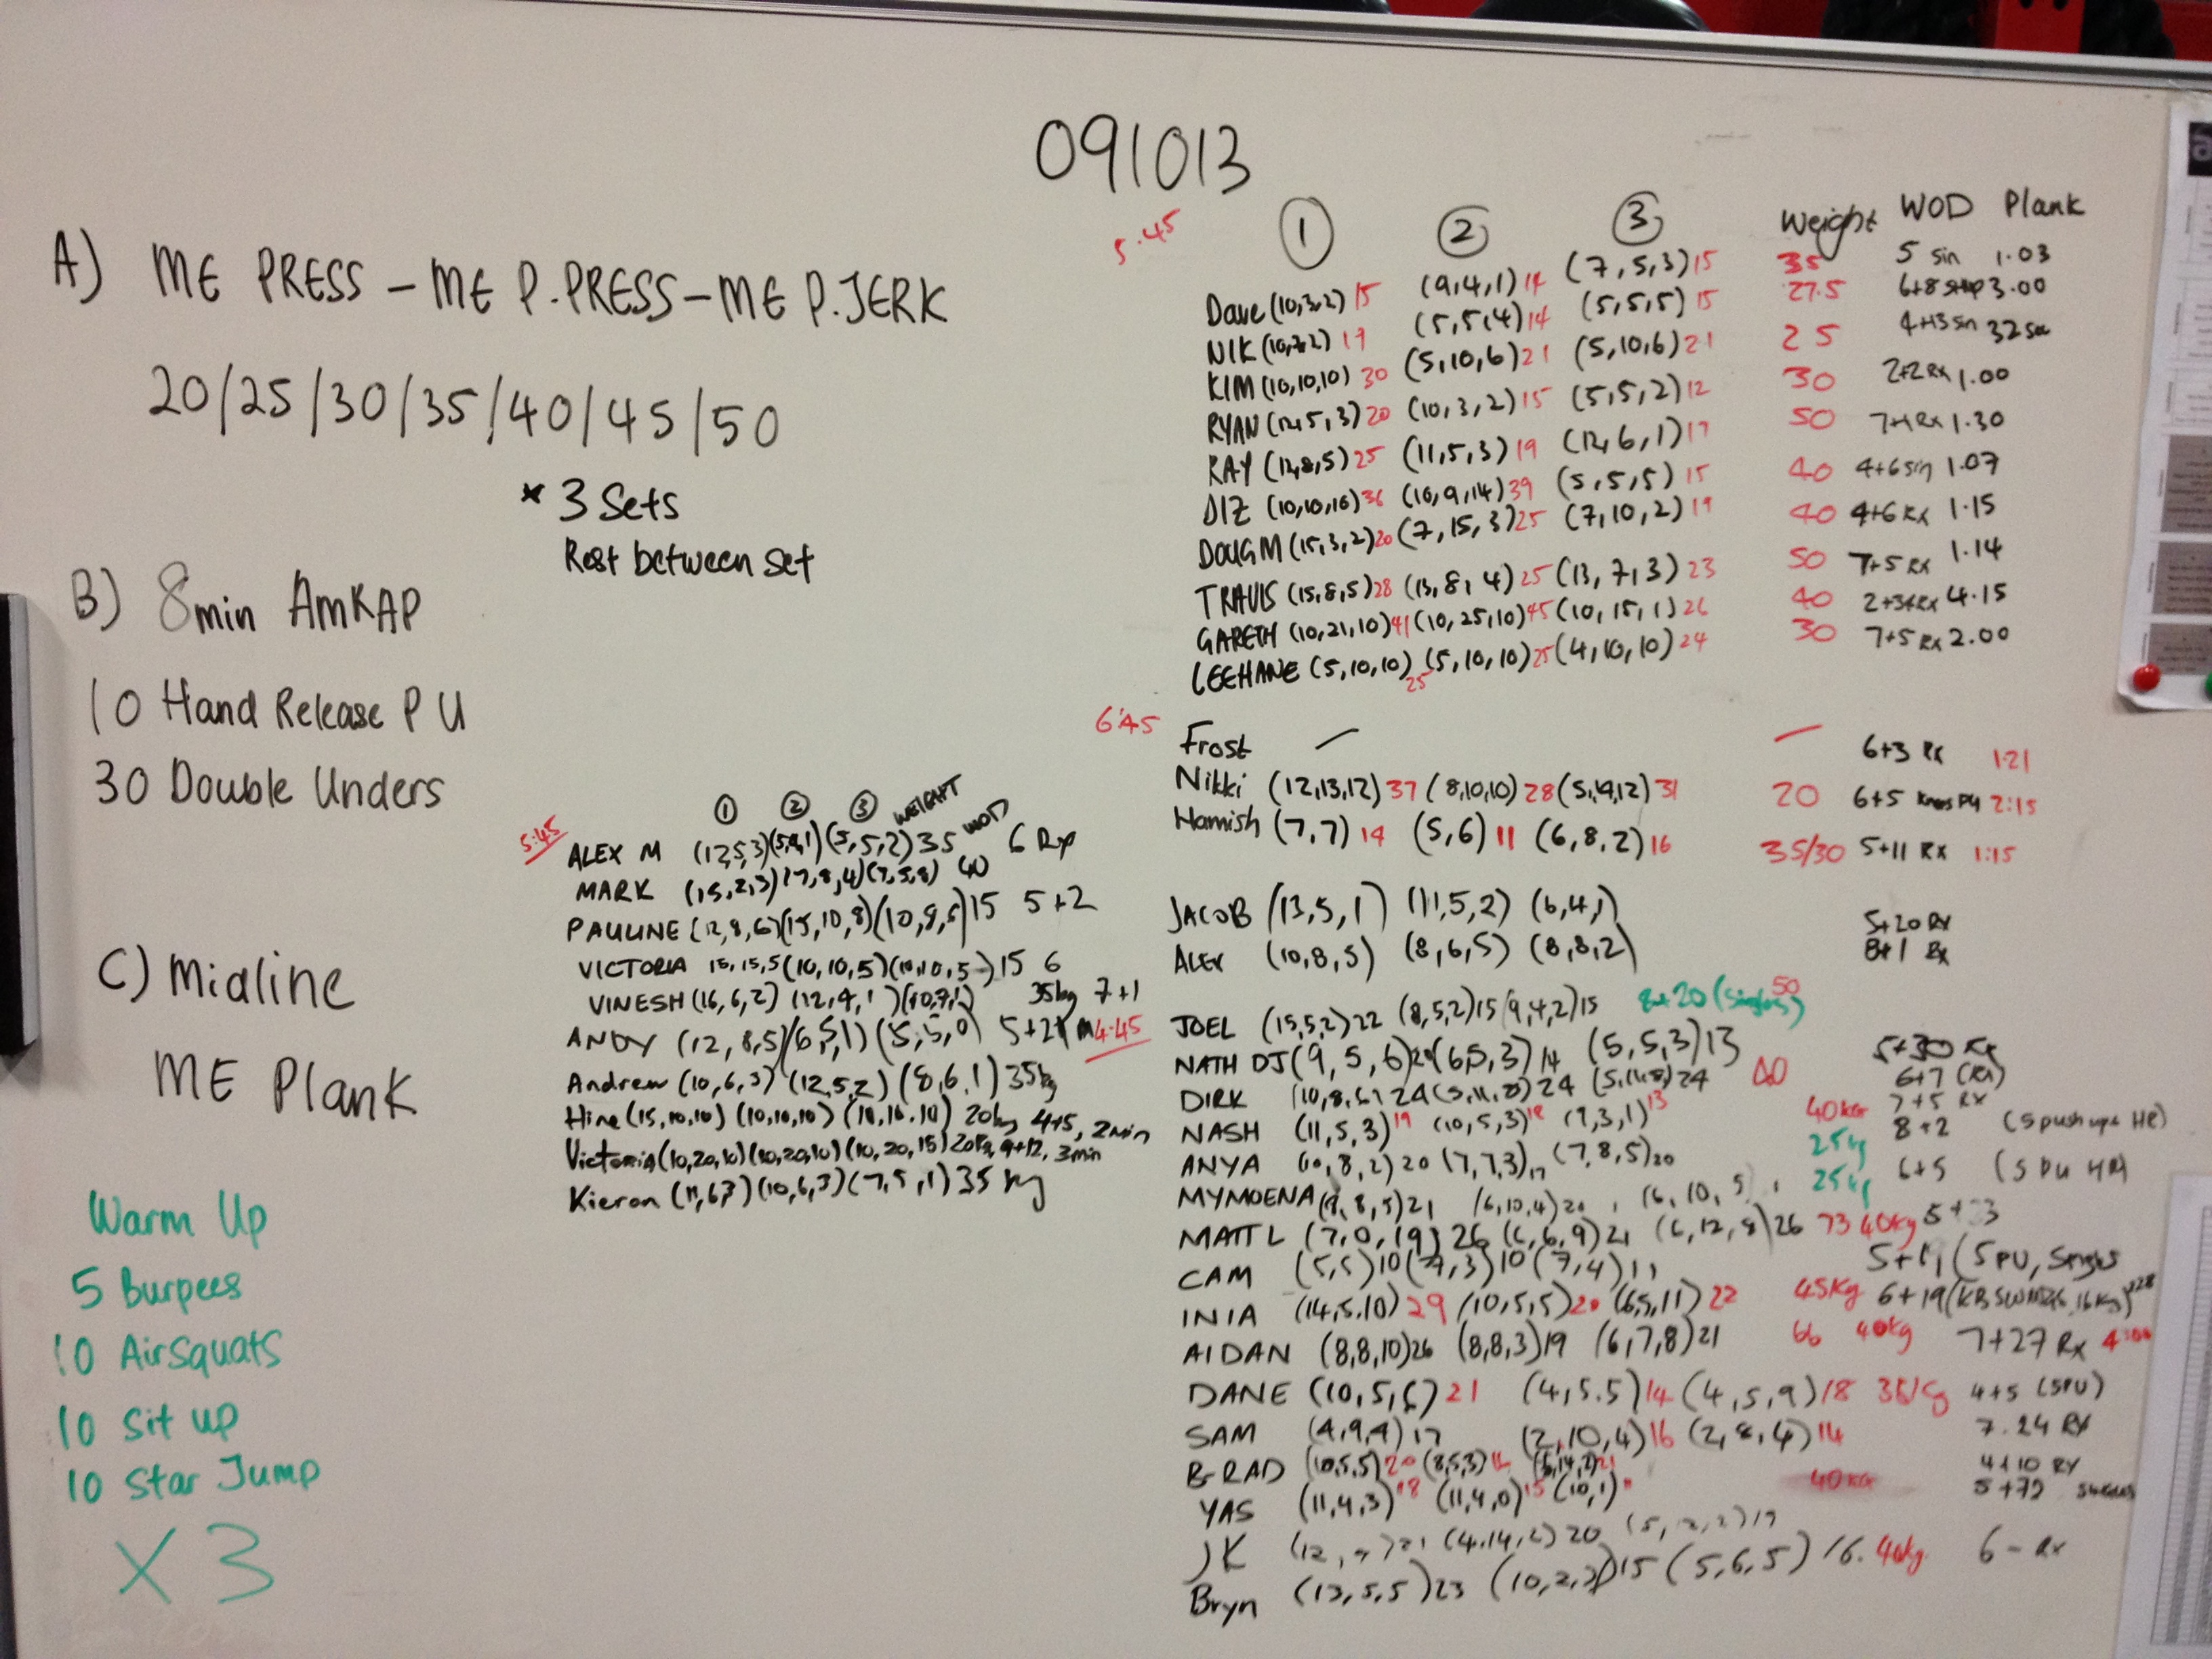 091013
A) ME PRESS - ME P.PRESS - ME P.JERK
20/25/30/35/40/45/50
* 3 Sets
Rest between set
B) 8min AmRAP
10 Hand Release P U
30 Double Unders
C) Midline
ME Plank
Warm Up
5 Burpees
10 AirSquats
10 Sit up
10 Star Jump
X 3
① ② ③ WEIGHT WOD
5:45
ALEX M (12,5,3) (5,5,2) 35 6
MARK (15,2,3) (7,8,4) 40
PAULINE (12,8,6) (15,10,8) 15 5+2
VICTORIA 15,15,5 (10,10,5) (10,10,5) 15 6
VINESH (16,6,2) (12,4,1) 35kg 7+1
ANDY (12,8,5) (6,5,1) (5,5,0)
Andrew (10,6,3) (12,5,2) (8,6,1) 35kg
Hine (15,10,10) (10,10,10) (10,10,10) 20kg 4+5, 2min
Victoria (10,20,10) (10,20,10) (10,20,15) 20kg, 9+12, 3min
Kieron (10,6,3) (7,5,1) 35 kg
5.45 ① ② ③ Weight WOD Plank
Dave (10,3,2) 15 (9,4,1) 14 (7,5,3) 15 35 5 sin 1.03
NIK (10,7,2) 19 (5,5,4) 14 (5,5,5) 15 27.5 6+8 3.00
KIM (10,10,10) 30 (5,10,6) 21 (5,10,6) 21 25 4+13 sin 32 sec
RYAN (12,5,3) 20 (10,3,2) 15 (5,5,2) 12 30 2+2 Rx 1.00
RAY (12,8,5) 25 (11,5,3) 19 (12,6,1) 19 50 7+1 Rx 1.30
DIZ (10,10,16) 36 (16,9,14) 39 (5,5,5) 15 40 4+6 sin 1.07
DOUG M (15,3,2) 20 (7,15,3) 25 (7,10,2) 19 40 4+6 Rx 1.15
TRAVIS (15,8,5) 28 (13,8,4) 25 (13,7,3) 23 50 7+5 Rx 1.14
GARETH (10,21,10) 41 (10,25,10) 45 (10,15,1) 26 40 2+3 Rx 4.15
LEEHANE (5,10,10) 25 (5,10,10) 25 (4,10,10) 24 30 7+5 Rx 2.00
6:45
Frost — — 6+3 Rx 1:21
Nikki (12,13,12) 37 (8,10,10) 28 (5,14,12) 31 20 6+5 Knees PU 2:15
Hamish (7,7) 14 (5,6) 11 (6,8,2) 16 35/30 5+11 Rx 1:15
JACOB (13,5,1) (11,5,2) (6,4,1) 5+20 Rx
ALEX (10,8,5) (8,6,5) (8,8,2) 8+1 Rx
4.45
JOEL (15,5,2) 22 (8,5,2) 15 (9,4,2) 15 8+20 (Singles) 50
NATH DJ (9,5,6) 20 (6,5,3) 14 (5,5,3) 13 5+30 Rx
DIRK (10,8,6) 24 (5,11,8) 24 (5,11,8) 24 40 6+7 (Rx)
NASH (11,5,3) 19 (10,5,3) 18 (9,3,1) 13 40kg 7+5 Rx
ANYA (10,8,2) 20 (7,7,3) 17 (7,8,5) 20 25kg 8+2 (5 push ups HR)
MYMOENA (8,8,5) 21 (6,10,4) 20 (6,10,5) 25kg 6+5 (5 PU HR)
MATT L (7,0,19) 26 (6,6,9) 21 (6,12,8) 26 73 40kg
CAM (5,5) 10 (7,3) 10 (7,4) 11 (5 PU, Singles
INIA (14,5,10) 29 (10,5,5) 20 (6,5,11) 22 45kg 6+19 (KB SWINGS, 16kg)
AIDAN (8,8,10) 26 (8,8,3) 19 (6,7,8) 21 66 40kg 7+27 Rx 4:00
DANE (10,5,6) 21 (4,5.5) 14 (4,5,9) 18 35kg 4+5 (5PU)
SAM (4,9,4) 17 (2,10,4) 16 (2,8,4) 14 7.24 Rx
B-RAD (10,5,5) 20 (8,5,3) 16 (5,14,2) 21 4+10 Rx
YAS (11,4,3) 18 (11,4,0) 15 (10,1) 11 40kg 5+72 singles
JK (4,14,2) 20
Bryn (13,5,5) 23 (10,2,3) 15 (5,6,5) 16. 40kg 6 - Rx